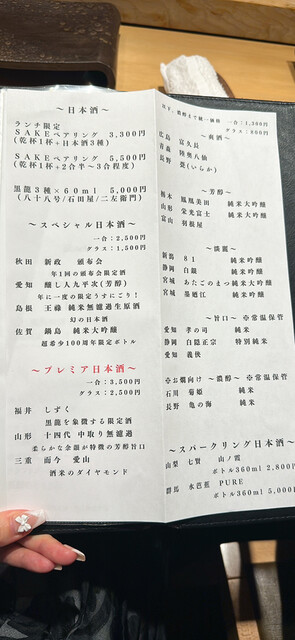 ～日本酒～
ランチ限定
SAKEペアリング 3,300円
(乾杯1杯+日本酒3種)
SAKEペアリング 5,500円
(乾杯1杯+2合半～3合程度)
黒龍3種×60ml 5,000円
(八十八号/石田屋/二左衛門)
～スペシャル日本酒～
一合：2,500円
グラス：1,500円
秋田 新政 頒布会
年1回の頒布会限定酒
愛知 醸し人九平次(芳醇)
年に一度の限定うすにごり！
島根 王祿 純米無濾過生原酒
幻の日本酒
佐賀 鍋島 純米大吟醸
超希少100周年限定ボトル
～プレミア日本酒～
一合：3,500円
グラス：2,500円
福井 しずく
黒龍を象徴する限定酒
山形 十四代 中取り無濾過
柔らかな余韻が特徴の芳醇旨口
三重 而今 愛山
酒米のダイヤモンド
一合：1,300円
グラス：800円
～爽酒～
広島 富久長
青森 陸奥八仙
長野 (いらか)
～芳醇～
栃木 鳳凰美田 純米大吟醸
山形 栄光冨士 純米大吟醸
富山 羽根屋
～淡麗～
新潟 81 純米吟醸
静岡 白隠 純米吟醸
宮城 あたごのまつ 純米吟醸
宮城 墨廼江 純米吟醸
～旨口～ ※常温保管
愛知 孝の司 純米
静岡 白隠正宗 特別純米
愛知 義侠
※お燗向け ～濃醇～ ※常温保管
石川 菊姫 純米
長野 亀の海 純米
～スパークリング日本酒～
山梨 七賢 山ノ霞
ボトル360ml 2,800円
群馬 水芭蕉 PURE
ボトル360ml 5,000円